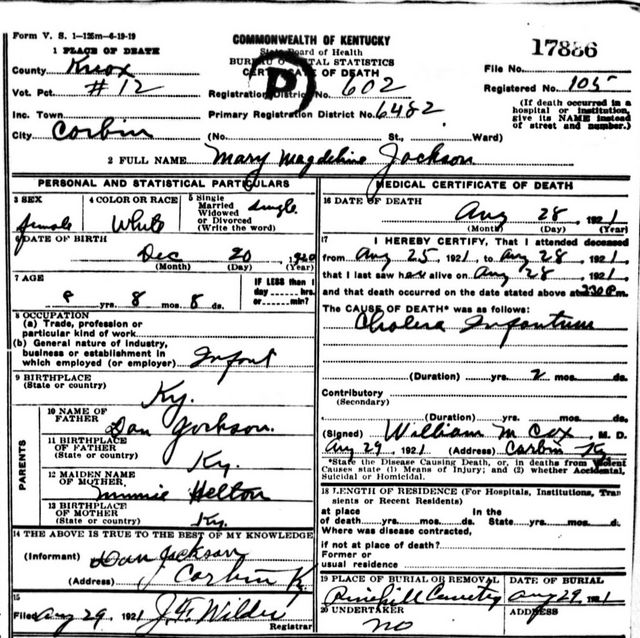 Form V. S. 1—125m—6-19-19
COMMONWEALTH OF KENTUCKY
State Board of Health
BUREAU OF VITAL STATISTICS
CERTIFICATE OF DEATH
D
17886
File No.
Registered No. 105
(If death occurred in a hospital or institution, give its NAME instead of street and number.)
1 PLACE OF DEATH
County Knox
Vot. Pct. #12
Inc. Town
City Corbin
Registration District No. 602
Primary Registration District No. 6482
(No. St., Ward)
2 FULL NAME Mary Magdeline Jackson
PERSONAL AND STATISTICAL PARTICULARS
3 SEX female
4 COLOR OR RACE White
5 Single Married Widowed or Divorced (Write the word) Single
6 DATE OF BIRTH
Dec 20 1920
(Month) (Day) (Year)
7 AGE
yrs. 8 mos. 8 ds.
IF LESS than 1 day hrs. or min?
8 OCCUPATION
(a) Trade, profession or particular kind of work
(b) General nature of industry, business or establishment in which employed (or employer) Infant
9 BIRTHPLACE
(State or country) Ky.
PARENTS
10 NAME OF FATHER Dan Jackson
11 BIRTHPLACE OF FATHER
(State or country) Ky.
12 MAIDEN NAME OF MOTHER Minnie Helton
13 BIRTHPLACE OF MOTHER
(State or country) Ky.
14 THE ABOVE IS TRUE TO THE BEST OF MY KNOWLEDGE
(Informant) Dan Jackson
(Address) Corbin Ky
15
Filed Aug 29, 1921 J. F. Wilder
Registrar
MEDICAL CERTIFICATE OF DEATH
16 DATE OF DEATH
Aug 28, 1921
(Month) (Day) (Year)
17 I HEREBY CERTIFY, That I attended deceased
from Aug 25, 1921 to Aug 28, 1921
that I last saw her alive on Aug 28, 1921,
and that death occurred on the date stated above at 2 30 P.m.
The CAUSE OF DEATH* was as follows:
Cholera Infantum
(Duration) yrs. 2 mos. ds.
Contributory
(Secondary)
(Duration) yrs. mos. ds.
(Signed) William M Cox, M. D.
Aug 29, 1921 (Address) Corbin Ky
*State the Disease Causing Death, or, in deaths from Violent
Causes state (1) Means of Injury; and (2) whether Accidental,
Suicidal or Homicidal.
18 LENGTH OF RESIDENCE (For Hospitals, Institutions, Transients or Recent Residents)
at place of death yrs. mos. ds. In the State yrs. mos. ds.
Where was disease contracted,
if not at place of death?
Former or
usual residence
19 PLACE OF BURIAL OR REMOVAL
Pinehill Cemetery
DATE OF BURIAL
Aug 29, 1921
20 UNDERTAKER
no
ADDRESS